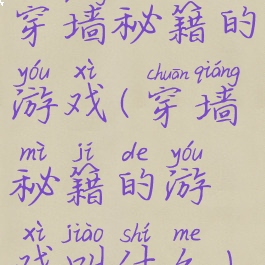 穿墙秘籍的
yóu xì chuān qiáng
游戏(穿墙
mì jí de yóu
秘籍的游
xì jiào shí me
戏叫什么)